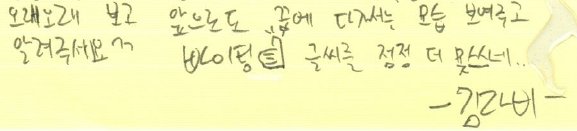 오래오래 보고 앞으로도 꿈에 다가서는 모습 보여주고
알려주세요^^ 바이팅 글씨를 점점 더 못쓰네..
-김나비-